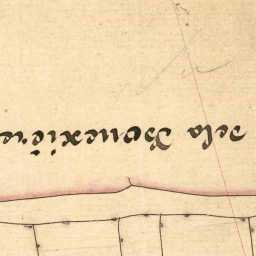 dela Bouexière